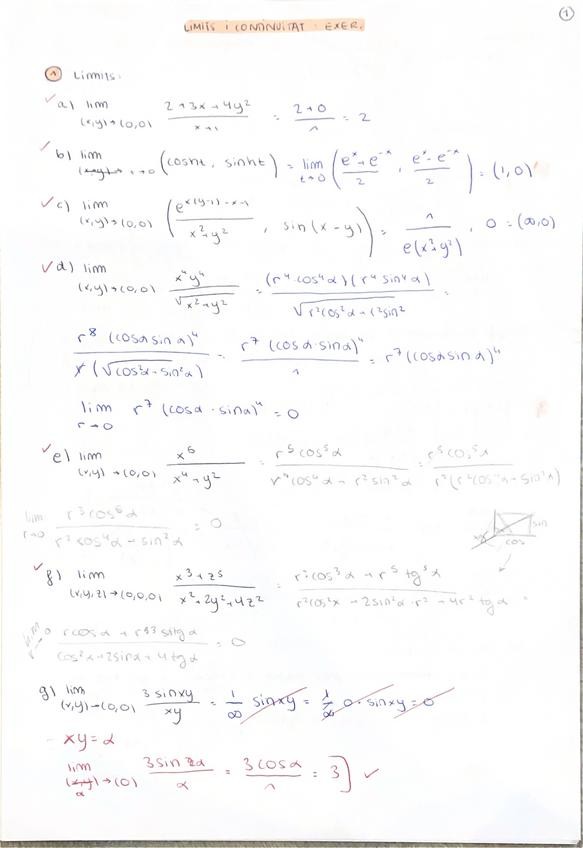 1
LIMITS i CONTINUITAT: EXER.
1 Límits:
✓a) lim (x,y)→(0,0) 2+3x+4y² / x+1 = 2+0 / 1 = 2
✓b) lim t→0 (cosht, sinht) = lim t→0 (e^x+e^-x / 2, e^x-e^-x / 2) = (1,0)
✓c) lim (x,y)→(0,0) (e^x(y-1)-x-1 / x²+y², sin(x-y)) = 1 / e(x²+y²), 0 = (∞,0)
✓d) lim (x,y)→(0,0) x⁴y⁴ / √x²+y² = (r⁴cos⁴α)(r⁴sin⁴α) / √r²cos²α+r²sin² =
r⁸(cosα sinα)⁴ / r(√cos²α+sin²α) = r⁷(cosα·sinα)⁴ / 1 = r⁷(cosα sinα)⁴
lim r→0 r⁷(cosα·sinα)⁴ = 0
✓e) lim (x,y)→(0,0) x⁵ / x⁴+y² = r⁵cos⁵α / r⁴cos⁴α+r²sin²α = r⁵cos⁵α / r²(r²cos⁴α+sin²α)
lim r→0 r³cos⁵α / r²cos⁴α+sin²α = 0
sin
cos
✓f) lim (x,y,z)→(0,0,0) x³+z⁵ / x²+2y²+4z² = r³cos³α+r⁵tg⁵α / r²cos²α+2sin²α·r²+4r²tgα =
= 0
g) lim (x,y)→(0,0) 3sinxy / xy = 1/∞ sinxy = 1/∞ 0·sinxy = 0
xy = α
lim α→(0) 3sinα / α = 3cosα / 1 = 3] ✓